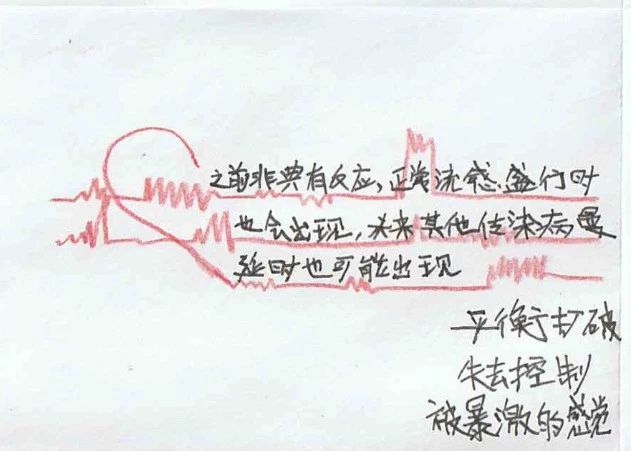 之前非典有反应，正常流感盛行时
也会出现，未来其他传染病蔓
延时也可能出现
平衡打破
失去控制
被暴激的感觉